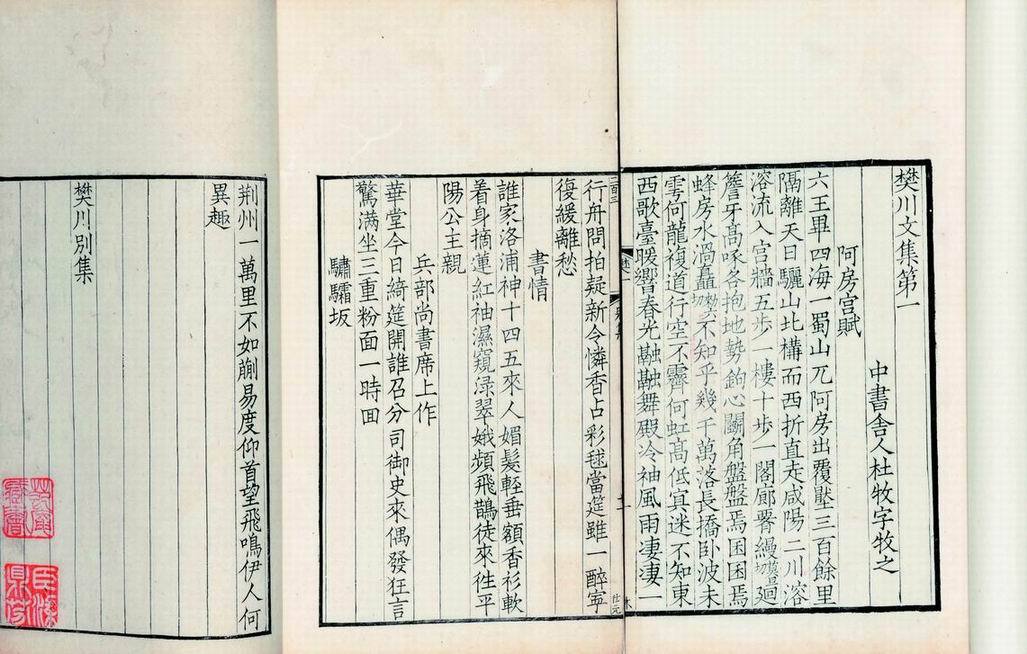 樊川文集第一
中書舍人杜牧字牧之
阿房宫賦
六王畢四海一蜀山兀阿房出覆壓三百餘里
隔離天日驪山北構而西折直走咸陽二川溶
溶流入宫牆五步一樓十步一閣廊署縵迴
簷牙髙啄各抱地勢鉤心鬬角盤盤焉囷囷焉
蜂房水渦矗不知乎幾千萬落長橋卧波未
雩何龍複道行空不霽何虹髙低㝠迷不知東
西歌臺暖響春光融融舞殿冷袖風雨凄凄一
行舟問拍疑新令憐香占彩毬當筵雖一醉寧
復緩離愁
書情
誰家洛浦神十四五來人媚髮輕垂額香衫軟
着身摘蓮紅袖濕窺渌翠娥頻飛鵲徒來徃平
陽公主親
兵部尚書席上作
華堂今日綺筵開誰召分司御史來偶發狂言
驚满坐三重粉面一時回
驌驦坂
荆州一萬里不如蒯易度仰首望飛鳴伊人何
異趣
樊川別集